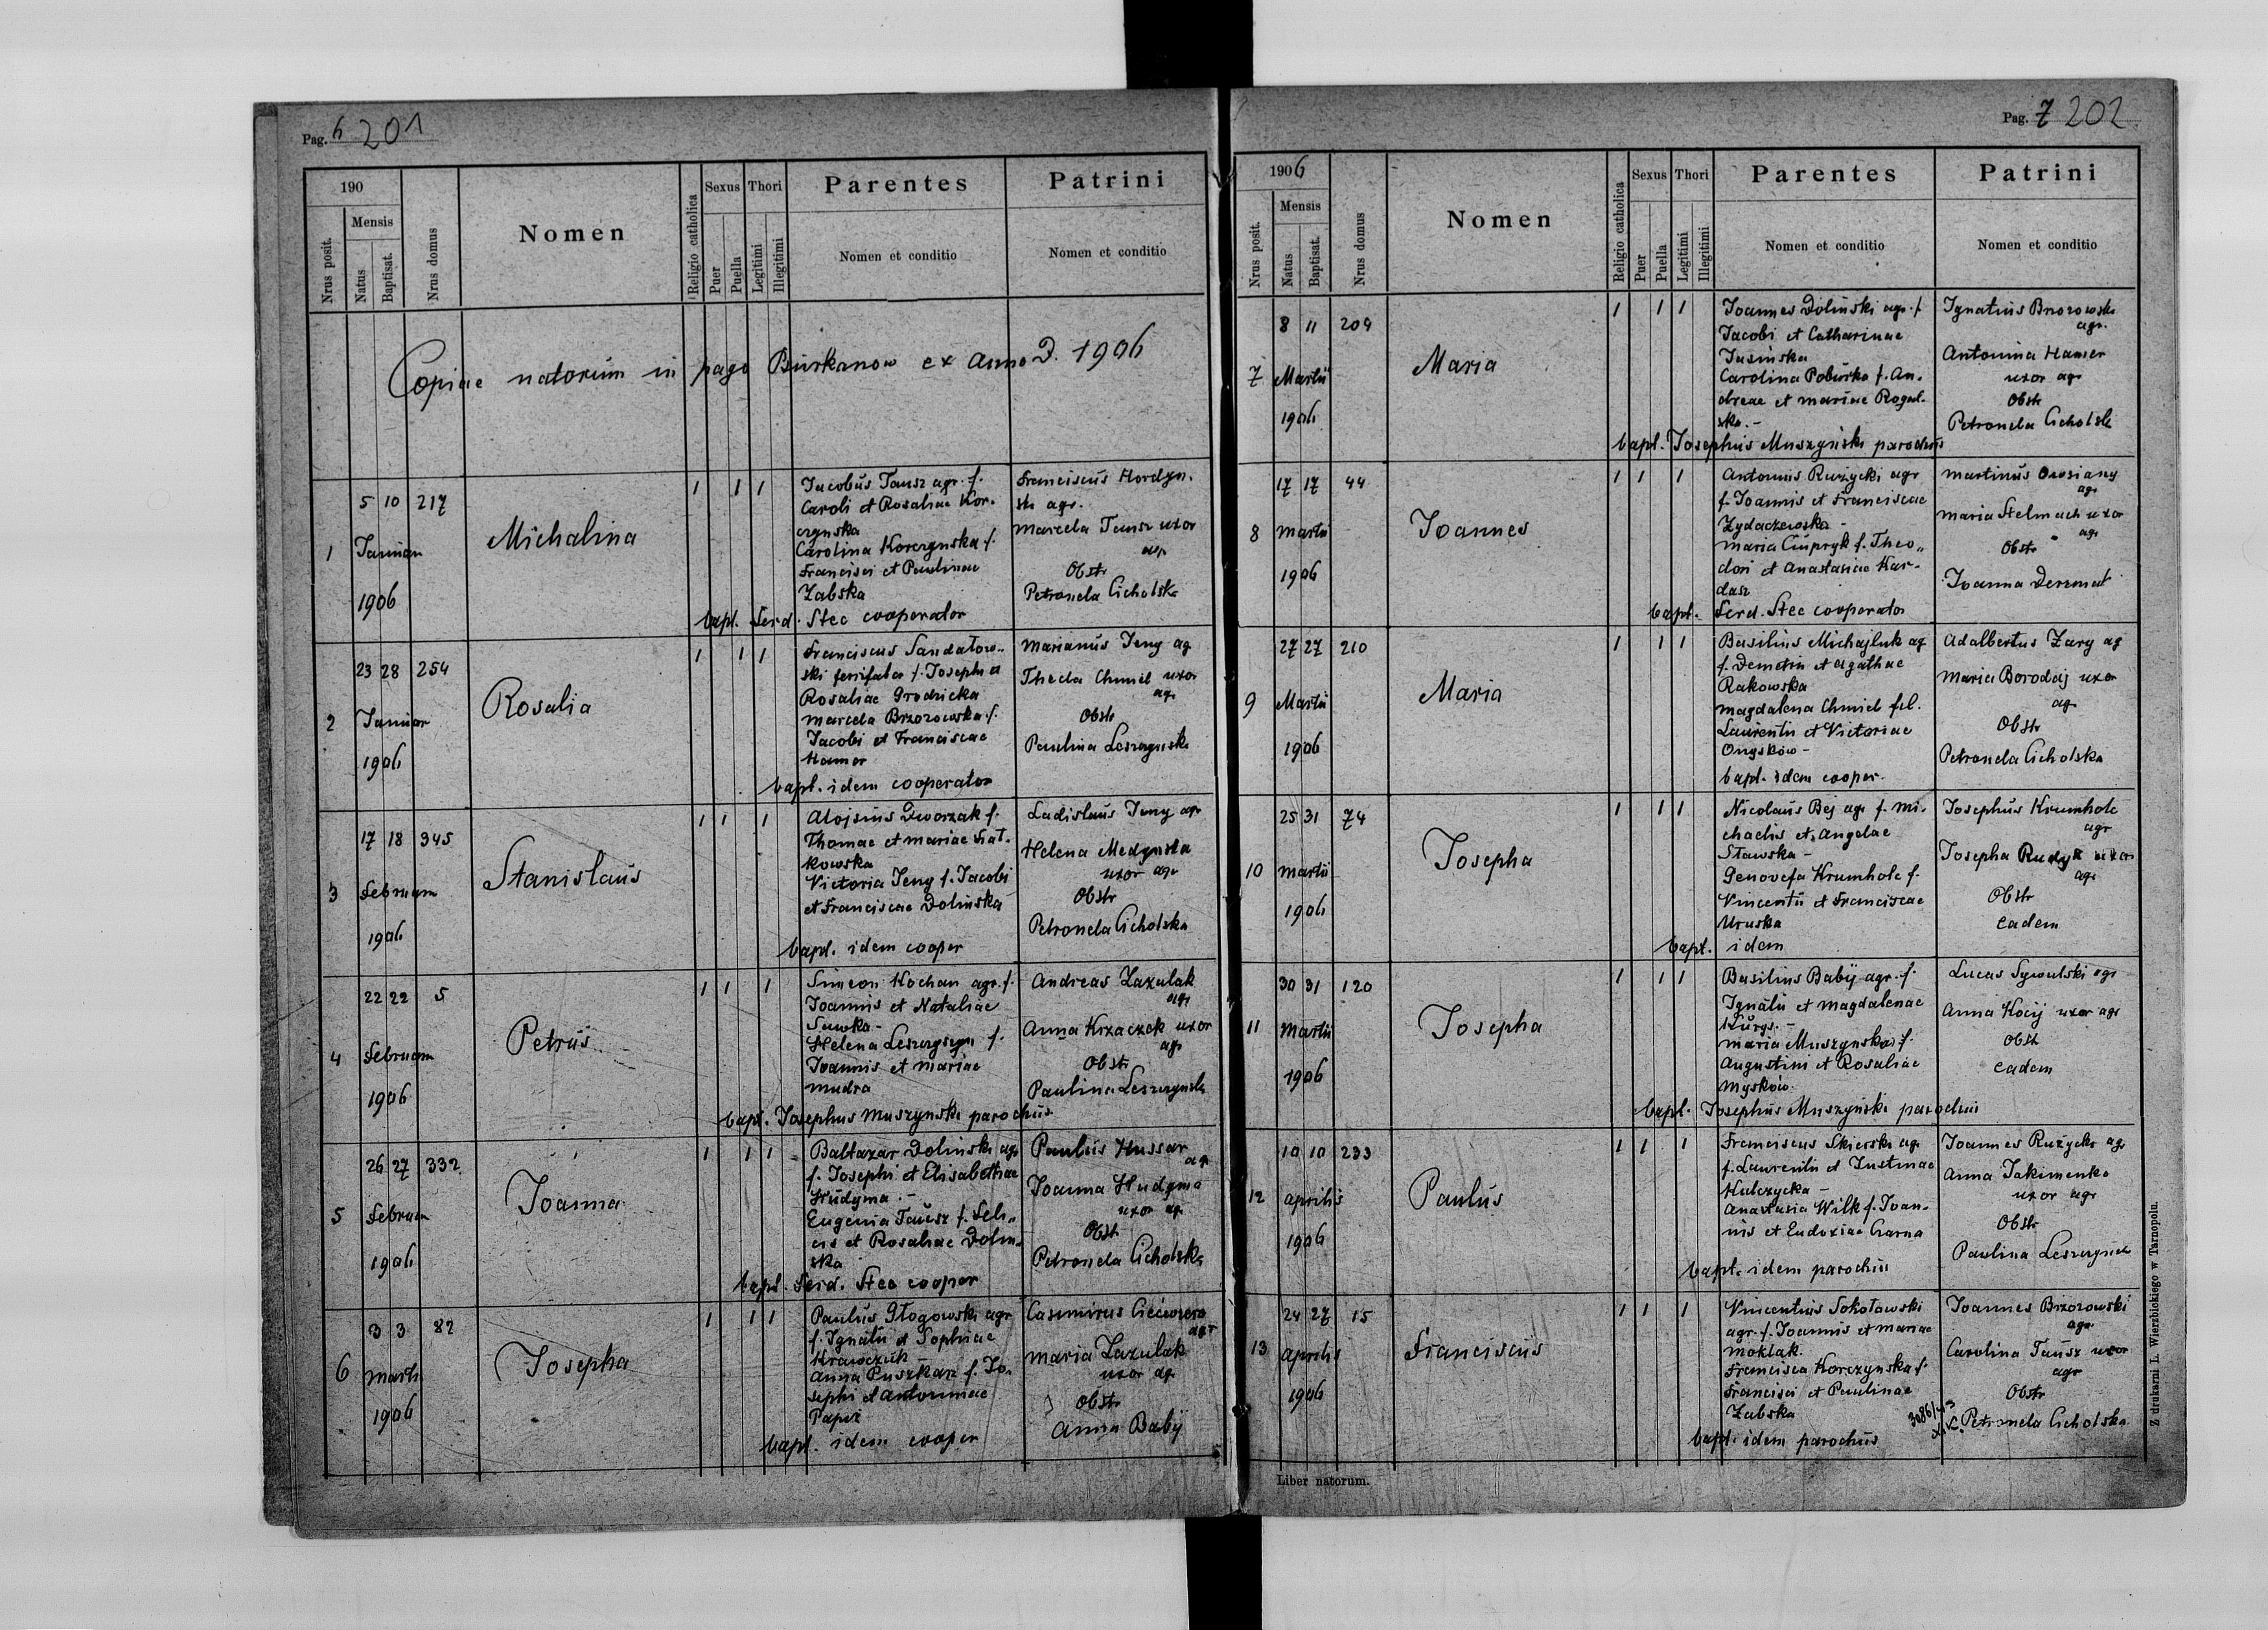 Pag. 6 201
190
Nrus posit.
Mensis
Natus
Baptisat.
Nrus domus
Nomen
Religio catholica
Sexus
Puer
Puella
Thori
Legitimi
Illegitimi
Parentes
Nomen et conditio
Patrini
Nomen et conditio
Copiae natorum in pago Burkanow ex Anno D. 1906
1
5 10 217
Januar
1906
Michalina
1 1 1
Jacobus Tausz agr. f.
Caroli et Rosaliae Kor-
czynska
Carolina Korczynska f.
Francisci et Paulinae
Zabska
bapt. Ferd. Stec cooperator
Franciscus Hordyn-
ski agr.
Marcela Tausz uxor
agr
Obstr
Petronela Cicholska
2
23 28 254
Januar
1906
Rosalia
1 1 1
Franciscus Sandatow-
ski f. Josephi et
Rosaliae Grodzicka
Marcela Brzozowska f.
Jacobi et Franciscae
Hamer
bapt. idem cooperator
Marianus Jeny ag
Thecla Chmiel uxor
agr
Obstr
Paulina Leszczynska
3
17 18 345
Februar
1906
Stanislaus
1 1 1
Aloisius Dworzak f.
Thomae et Mariae
Victoria Jeny f. Jacobi
et Franciscae Dolinska
bapt. idem cooper
Ladislaus Jeny agr
Helena Medynska
uxor agr
Obstr
Petronela Cicholska
4
22 22 5
Februar
1906
Petrus
1 1 1
Simeon Kochan agr. f.
Joannis et Nataliae
Sawka -
Helena Leszczyszyn f.
Joannis et Mariae
Mudra
bapt. Josephus Muszynski parochus
Andreas Zazulak
agr
Anna Krzaczek uxor
agr
Obstr
Paulina Leszczynska
5
26 27 332
Februar
1906
Joanna
1 1 1
Baltazar Dolinski agr
f. Josephi et Elisabethae
Hudyma. -
Eugenia Tausz f. Feli-
cis et Rosaliae Dolin-
ska
bapt. Ferd. Stec cooper
Paulus Hussar
agr
Joanna Hudyma
uxor agr
Obstr
Petronela Cicholska
6
3 3 82
Martii
1906
Josepha
1 1 1
Paulus Głogowski agr
f. Ignatii et Sophiae
Krawczuk -
Anna Puszkar f. Jo-
sephi et Antoninae
Papiz
bapt. idem cooper
Casimirus
agr
Maria Zazulak
uxor agr
Obstr
Anna Babij
Pag. 7 202
1906
Nrus posit.
Mensis
Natus
Baptisat.
Nrus domus
Nomen
Religio catholica
Sexus
Puer
Puella
Thori
Legitimi
Illegitimi
Parentes
Nomen et conditio
Patrini
Nomen et conditio
7
8 11 204
Martii
1906
Maria
1 1 1
Joannes Dolinski agr. f.
Jacobi et Catharinae
Jasinska
Carolina Poburka f. An-
dreae et Mariae Rogal-
ska. -
bapt. Josephus Muszyński parochus
Ignatius Brzozowski
agr.
Antonina Hamer
uxor agr
Obstr
Petronela Cicholska
8
17 17 44
Martii
1906
Joannes
1 1 1
Antonius Ružycki agr
f. Joannis et Franciscae
Zydaczewska -
Maria Ciupryk f. Theo-
dori et Anastasiae Kar-
dasz
bapt. Ferd. Stec cooperator
Martinus Ososiany
agr
Maria Stelmach uxor
agr
Obstr
Joanna Derzmat
9
27 27 210
Martii
1906
Maria
1 1 1
Basilius Michajluk ag
f. Demetrii et Agathae
Rakowska
Magdalena Chmiel fil.
Laurentii et Victoriae
Onysków -
bapt. idem cooper.
Adalbertus Zary ag
Maria Borodaj uxor
ag
Obstr
Petronela Cicholska
10
25 31 74
Martii
1906
Josepha
1 1 1
Nicolaus Bej agr f. Mi-
chaelis et Angelae
Stawska -
Genovefa Krumholc f.
Vincentii et Franciscae
Uruska
bapt. idem
Josephus Krumholc
agr
Josepha Rudyk uxor
agr
Obstr
eadem
11
30 31 120
Martii
1906
Josepha
1 1 1
Basilius Babij agr. f.
Ignatii et Magdalenae
Kurgs. -
Maria Muszynska f.
Augustini et Rosaliae
Mysków.
bapt. Josephus Muszyński parochus
Lucas Sywulski agr
Anna Kocij uxor agr
Obstr
eadem
12
10 10 233
Aprilis
1906
Paulus
1 1 1
Franciscus Skierski agr
f. Laurentii et Justinae
Kulczycka -
Anastasia Wilk f. Joan-
nis et Eudoxiae Czarna
bapt. idem parochus
Joannes Ružycki agr
Anna Jakimenko
uxor agr
Obstr
Paulina Leszczynska
13
24 27 15
Aprilis
1906
Franciscus
1 1 1
Vincentius Sokołowski
agr. f. Joannis et Mariae
Moklak.
Francisca Korczynska f.
Francisci et Paulinae
Zabska
bapt. idem parochus
Joannes Brzozowski
agr.
Carolina Tausz uxor
agr
Obstr
Petronela Cicholska
Liber natorum.
Z drukarni L. Wierzbickiego w Tarnopolu.